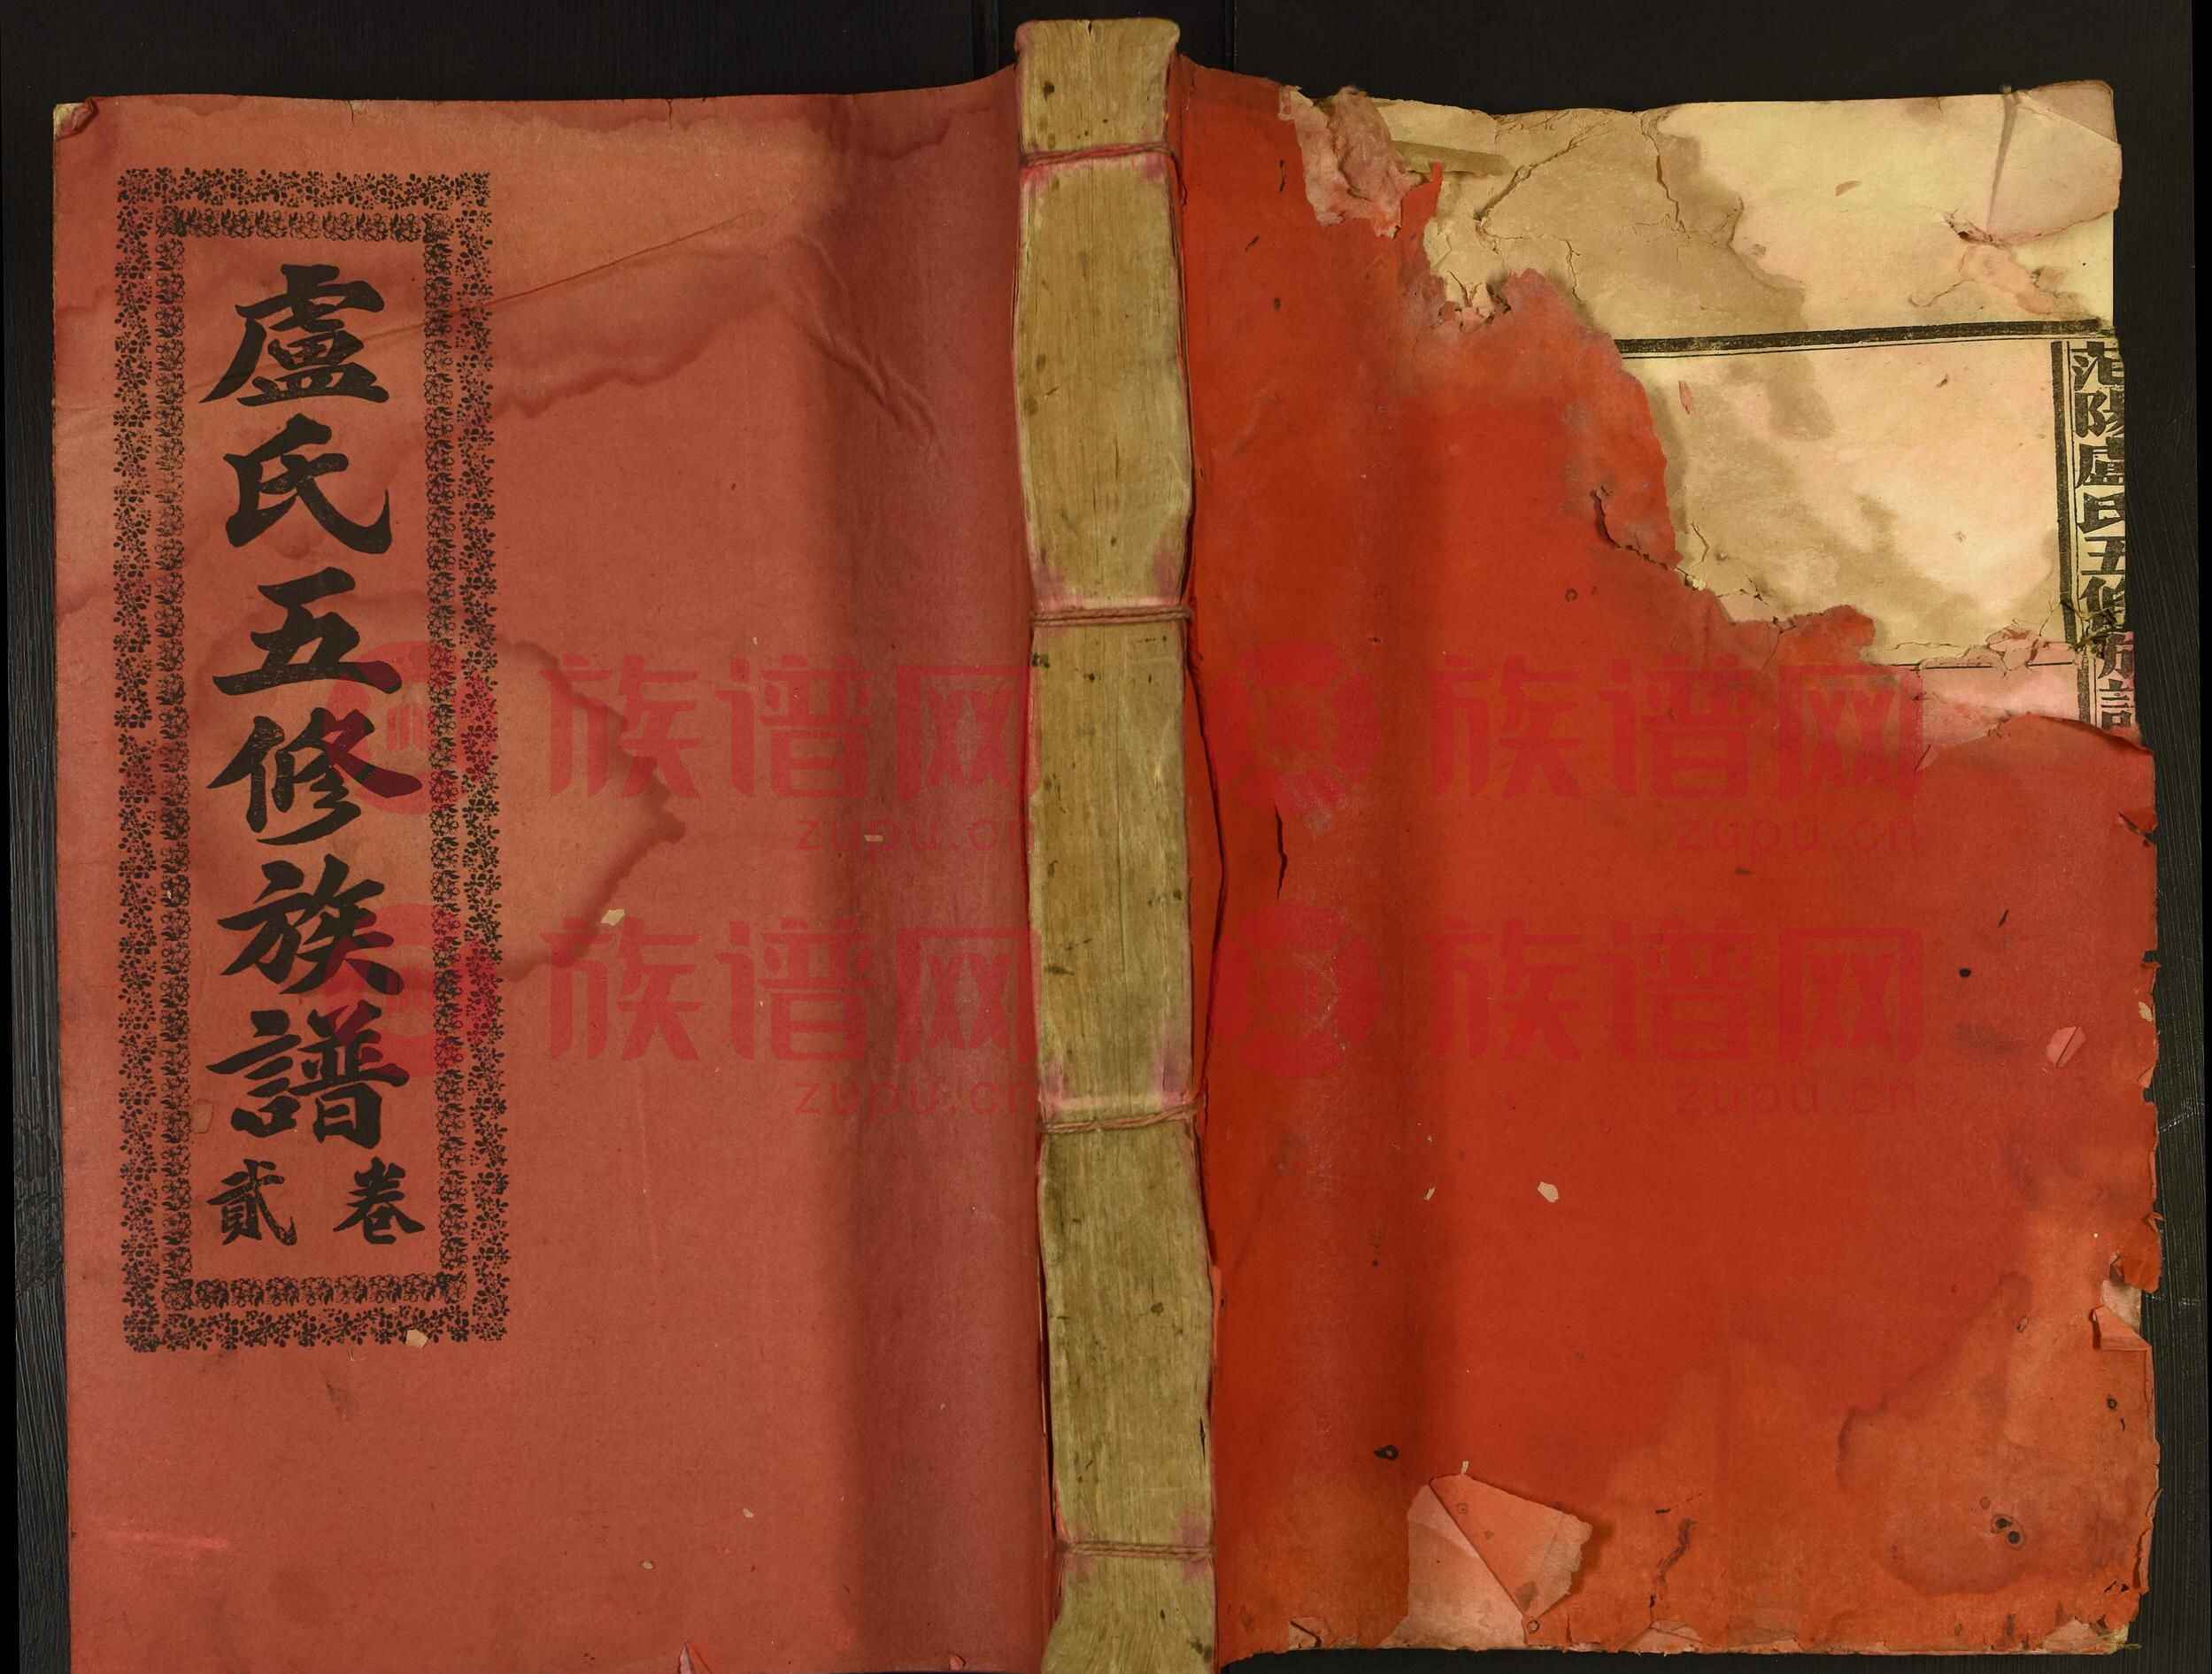 盧氏五修族譜
卷貳
范陽盧氏五修族譜
族谱网 族谱网
zupu.cn zupu.cn
族谱网 族谱网
zupu.cn zupu.cn